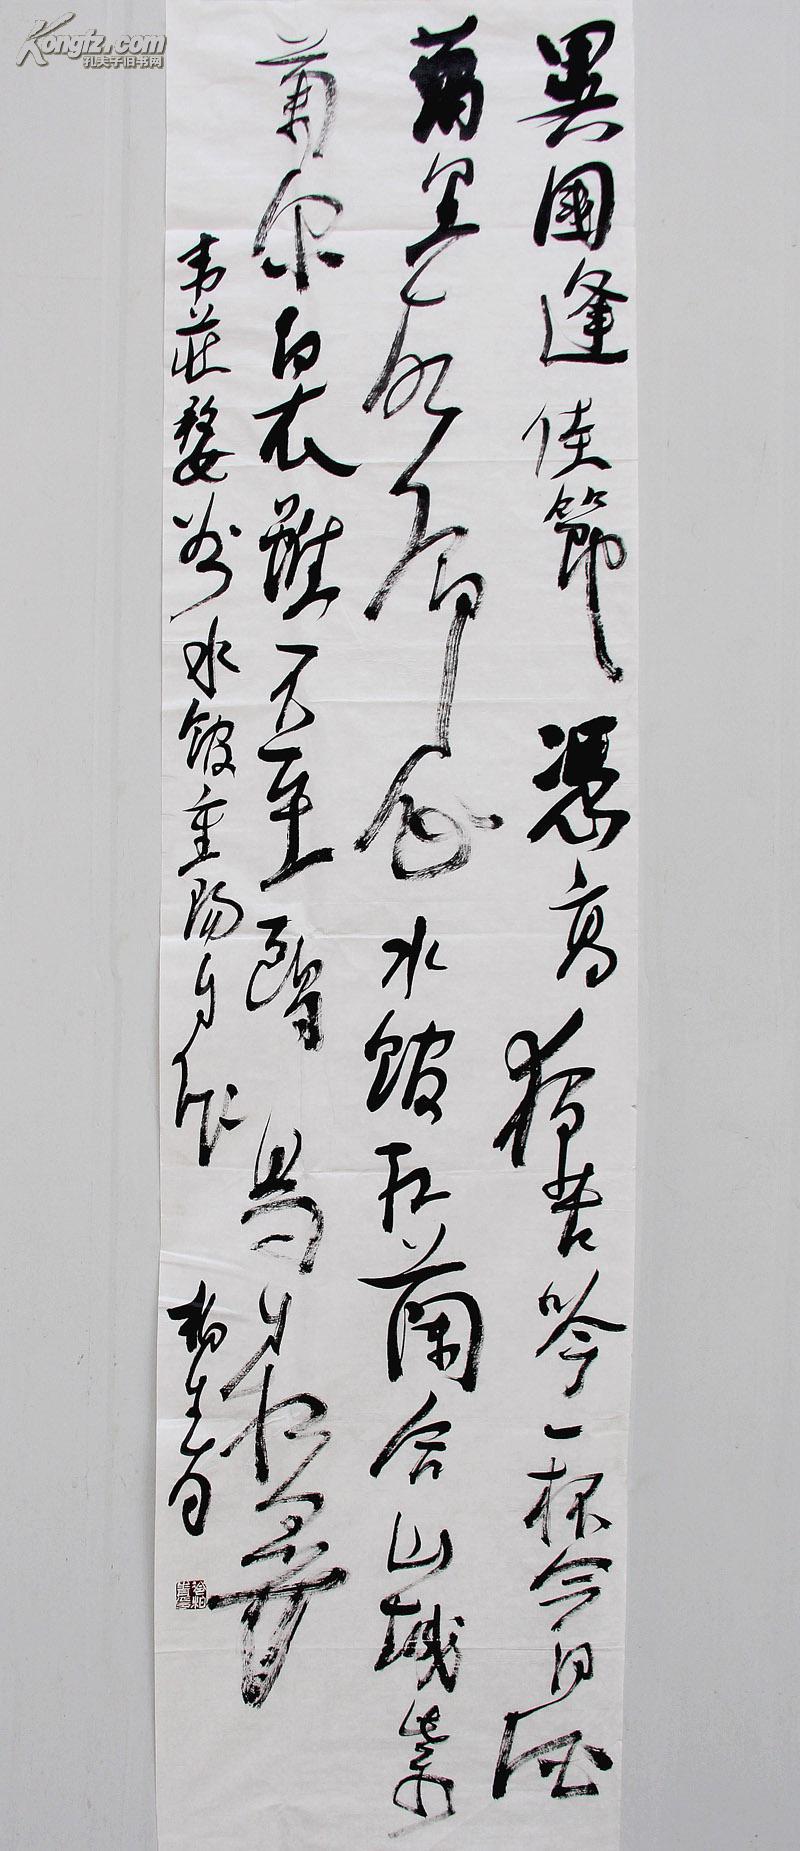 異國逢佳節憑高獨苦吟一杯今日酒
萬里故園心水館紅蘭合山城紫
菊深白衣雖不至鷗鳥自相尋
韦莊婺州水館重陽日作
Kongfz.com
孔夫子旧书网